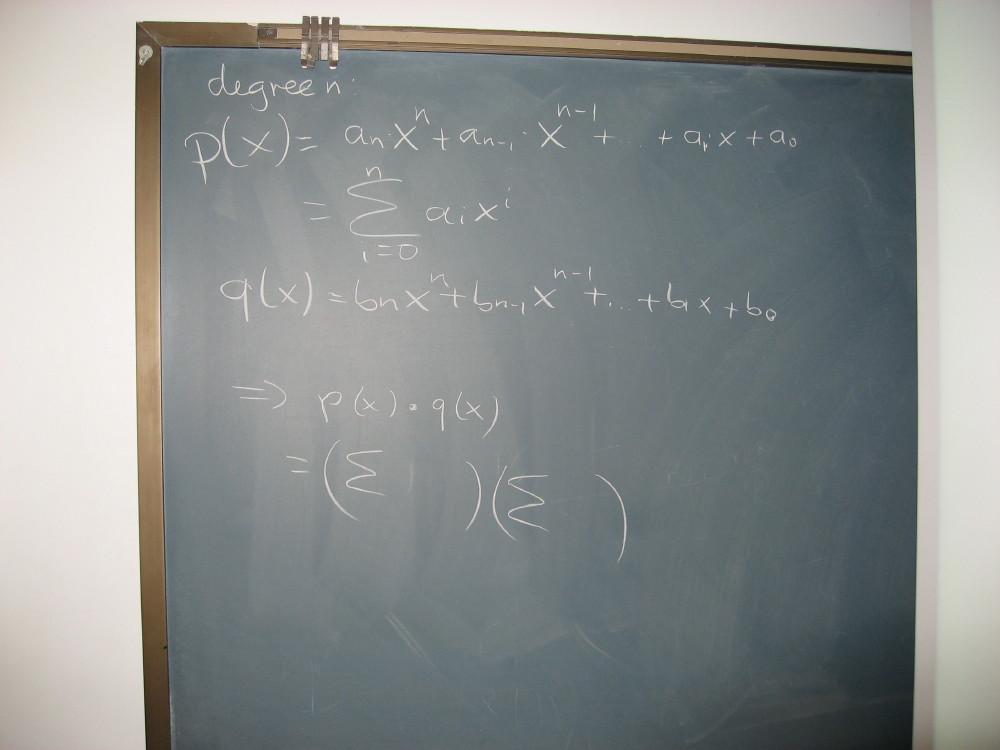 degree n:
p(x) = aₙxⁿ + aₙ₋₁ xⁿ⁻¹ + ... + a₁x + a₀
= ∑ᵢ₌₀ⁿ aᵢxⁱ
q(x) = bₙxⁿ + bₙ₋₁xⁿ⁻¹ + ... + b₁x + b₀
⇒ p(x) · q(x)
= (∑ )(∑ )